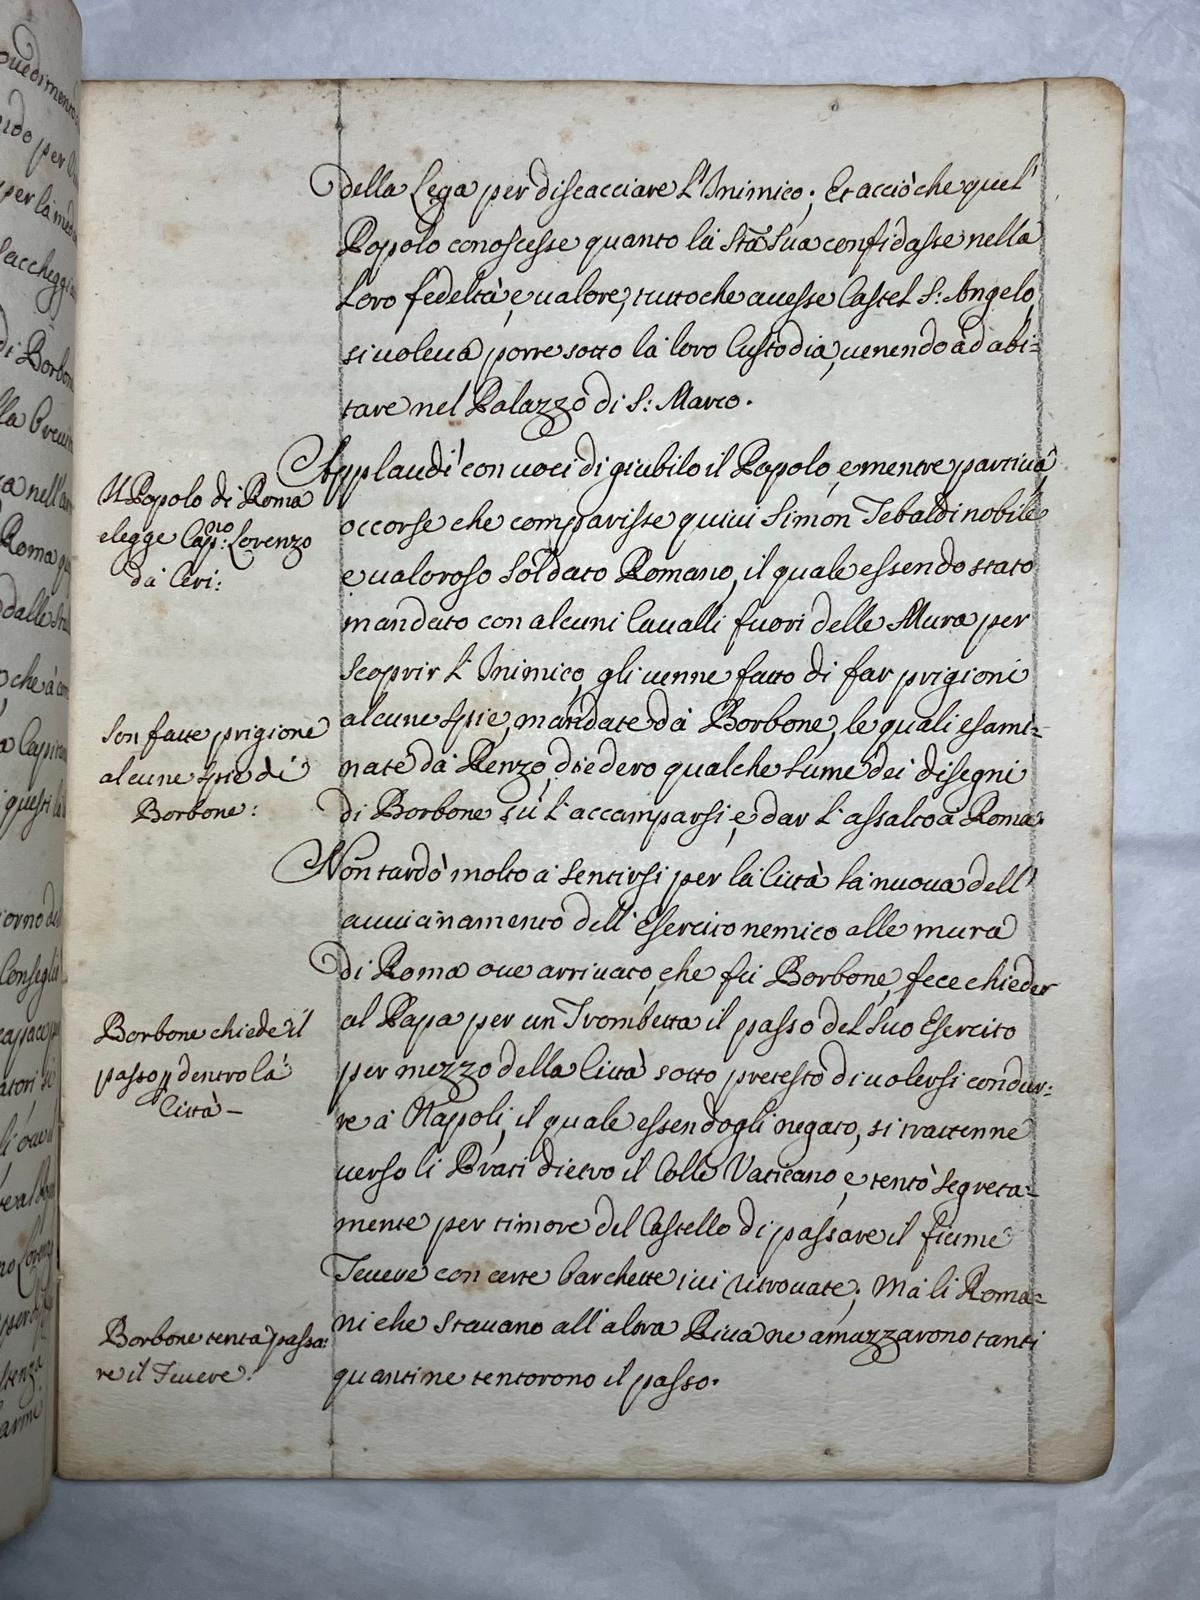 della Lega per discacciare l'Inimico; Et acciò che quel
Popolo conoscesse quanto la Stà Sua confidasse nella
loro fedeltà, e valore, tutto che avesse Castel S: Angelo,
si voleva porre sotto la loro Custodia, venendo ad abi=
tare nel Palazzo di S: Marco.
Applaudì con voci di giubilo il Popolo, e mentre partiva
occorse che comparisse quivi Simon Tebaldi nobile
e valoroso Soldato Romano, il quale essendo stato
mandato con alcuni Cavalli fuori delle Mura per
scoprir l'Inimico, gli venne fatto di far prigioni
alcune spie, mandate da Borbone, le quali esami=
nate da Renzo, diedero qualche lume dei disegni
di Borbone sù l'accamparsi, e dar l'assalto a Roma.
Non tardò molto a sentirsi per la Città la nuova dell'
avvicinamento dell'Esercito nemico alle mura
di Roma ove arrivato, che fù Borbone, fece chieder
al Papa per un Trombetta il passo del suo Esercito
per mezzo della Città sotto pretesto di volersi condur=
re a Napoli, il quale essendogli negato, si trattenne
verso li Prati dietro il Colle Vaticano, e tentò segreta=
mente per timore del Castello di passare il fiume
Tevere con certe barchette ivi ritrovate; Ma li Roma=
ni che stavano all'altra Riva ne amazzarono tanti
quanti ne tentorono il passo.
Il Popolo di Roma
elegge Cap:no Lorenzo
da Ceri:
Son fatte prigione
alcune spie di
Borbone:
Borbone chiede il
passo p dentro la
Città –
Borbone tenta passa:
re il Tevere: